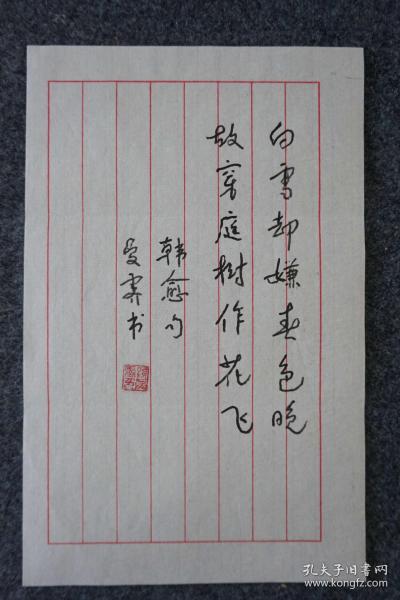 白雪却嫌春色晚
故穿庭树作花飞
韩愈句
受霁书
孔夫子旧书网
www.kongfz.com